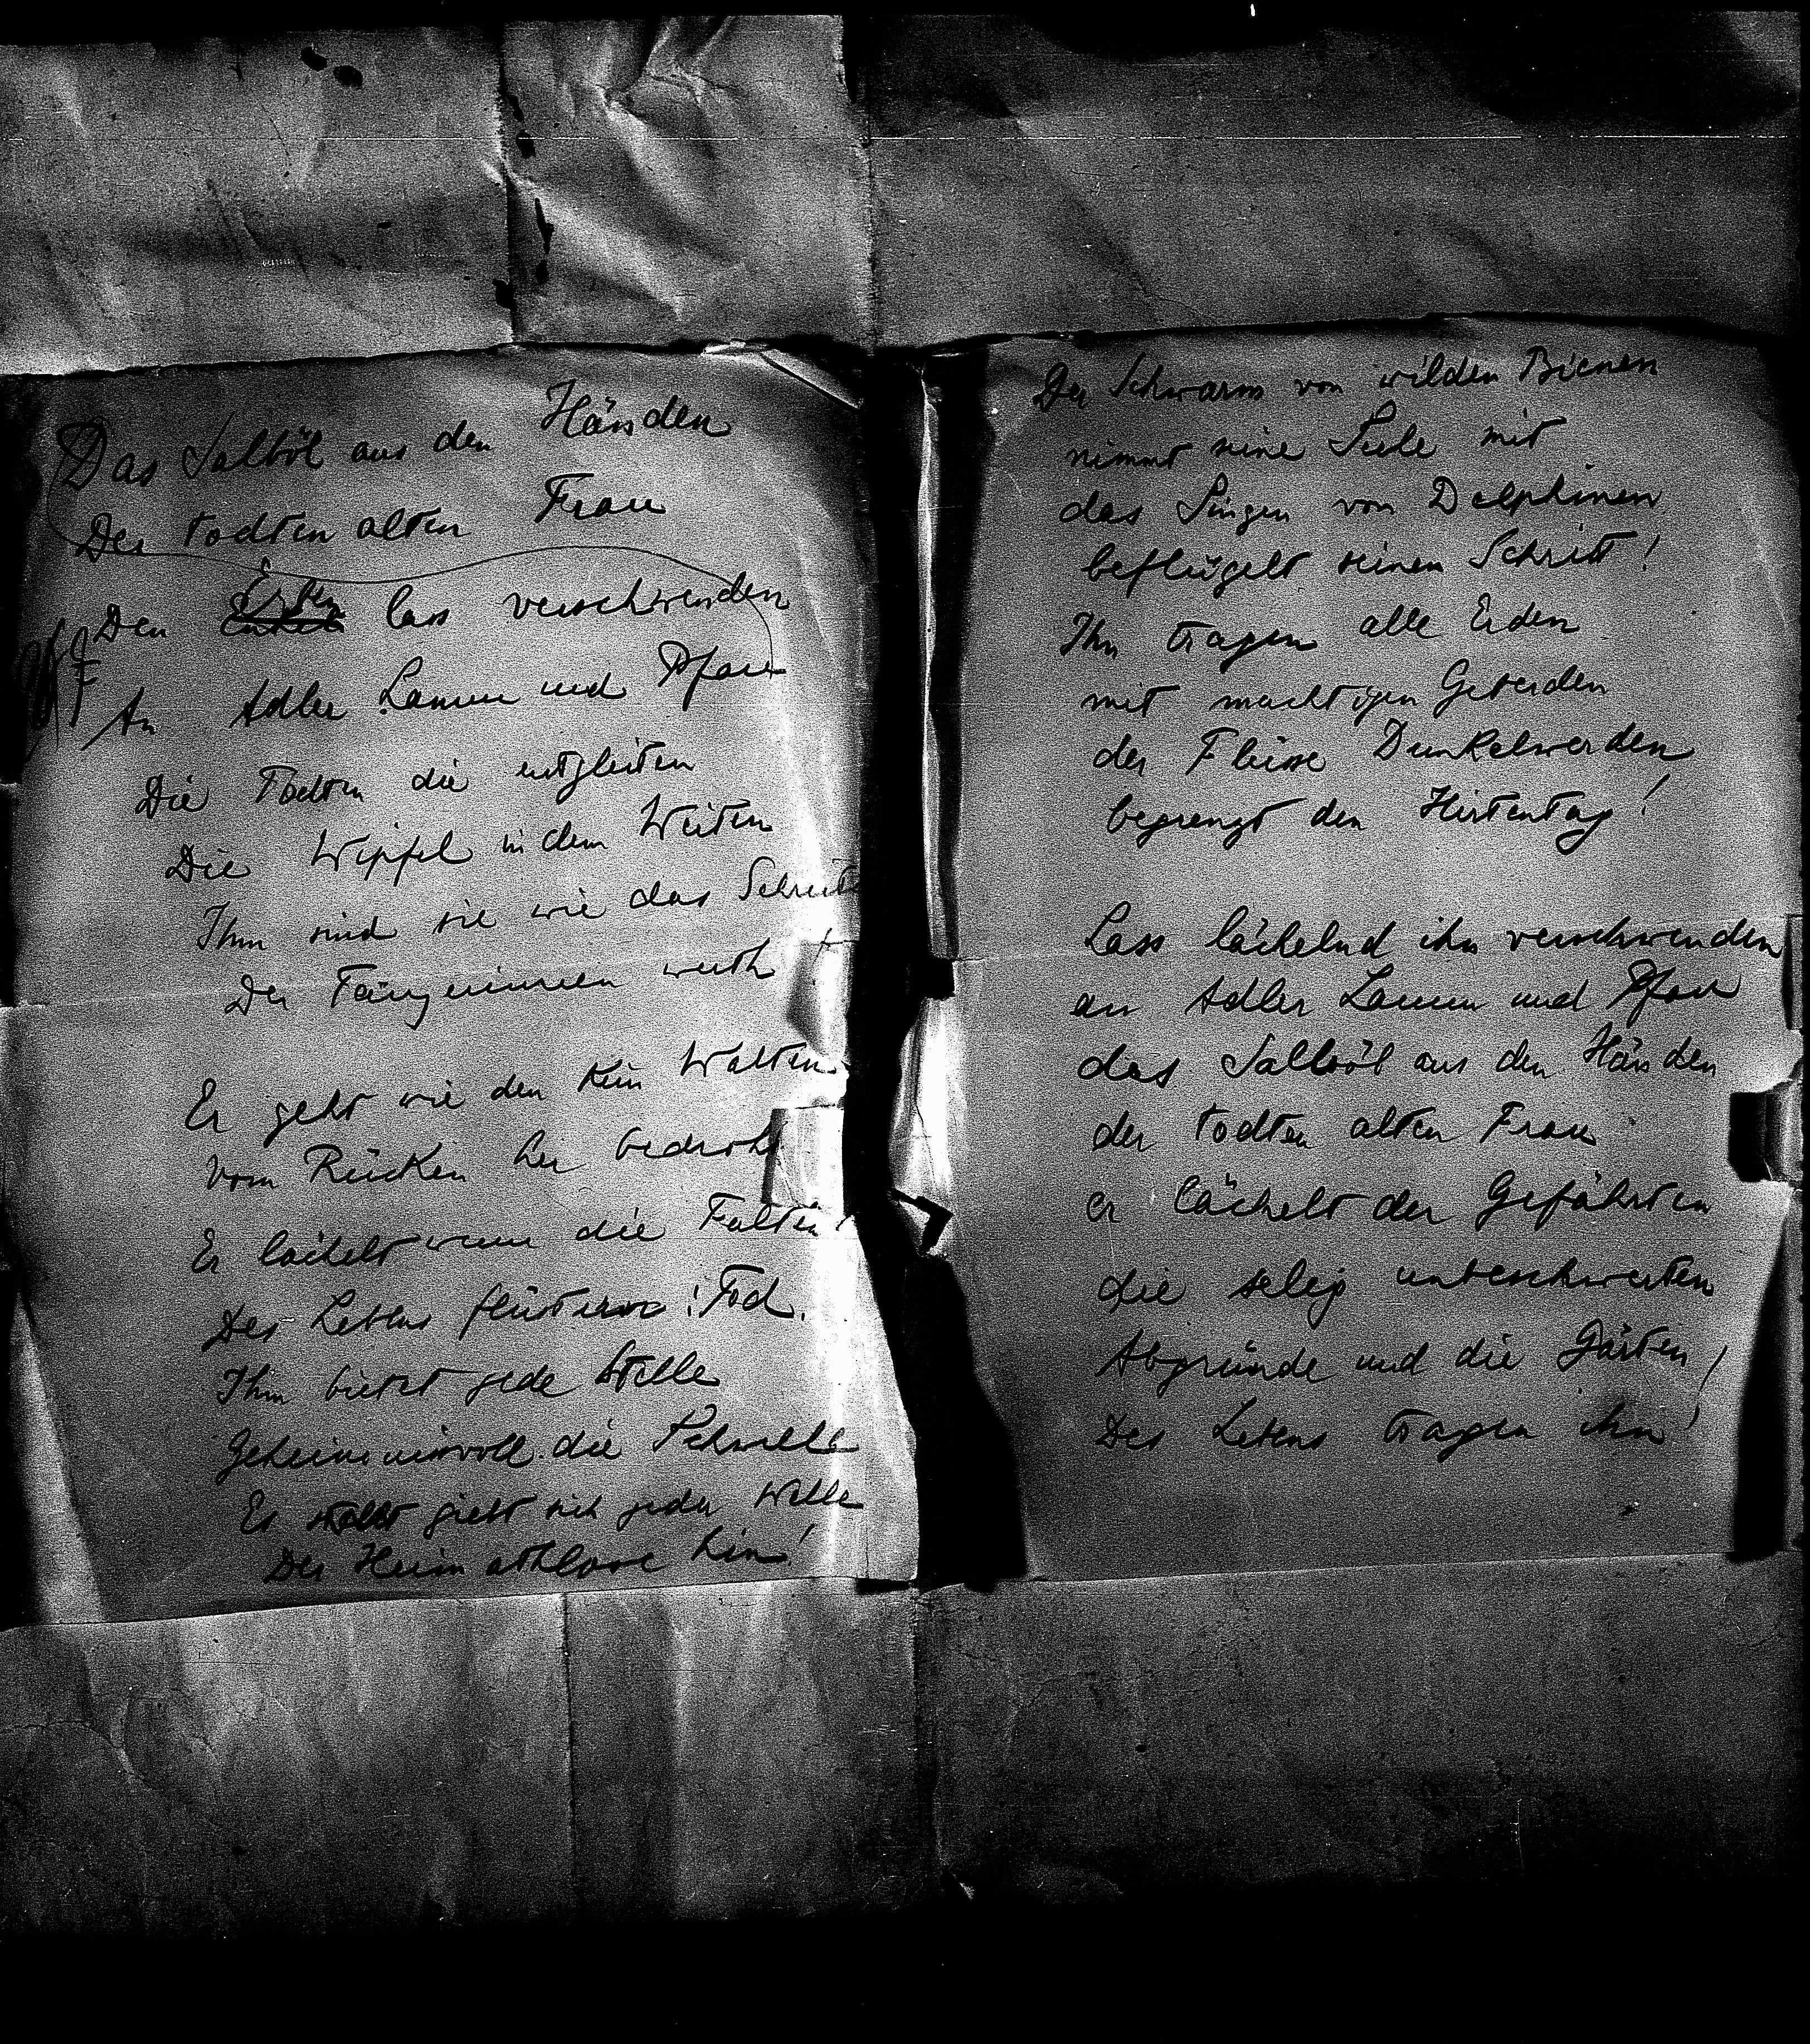 Das Salböl aus den Händen
Der todten alten Frau
Den Erben lass verschwenden
An Adler Lamm und Pfau
Die Todten die entgleiten
Die Wipfel in dem Weiten
Ihm sind sie wie das Schreiten
Der Tänzerinnen werth
Er geht wie den kein Walten
Vom Rücken her bedroht
Er lächelt wenn die Falten
Des Lebens flüstern: Tod.
Ihm bietet jede Stelle
Geheimnisvoll die Schwelle
Es giebt sich jeder Welle
Der Heimathlose hin!
Der Schwarm von wilden Bienen
nimmt seine Seele mit
das Singen von Delphinen
beflügelt seinen Schritt!
Ihn tragen alle Erden
mit mächtigen Geberden
der Flüsse Dunkelwerden
begrenzt den Hirtentag!
Lass lächelnd ihn verschwenden
an Adler Lamm und Pfau
das Salböl aus den Händen
der todten alten Frau
er lächelt der Gefährten
die selig unbeschwerten
Abgründe und die Gärten
Des Lebens tragen ihn!